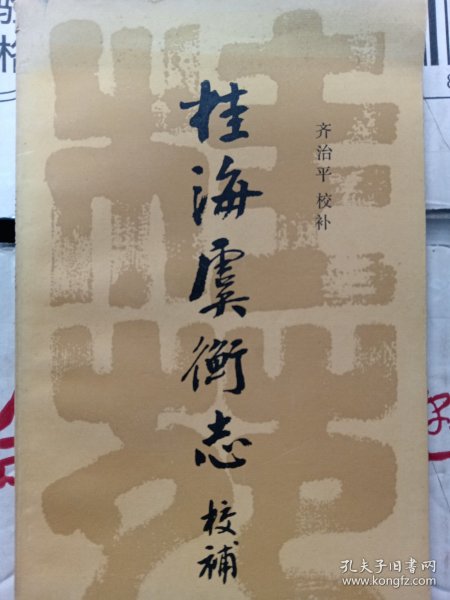 桂海虞衡志
校補
齐治平 校补
孔夫子旧书网
www.kongfz.com